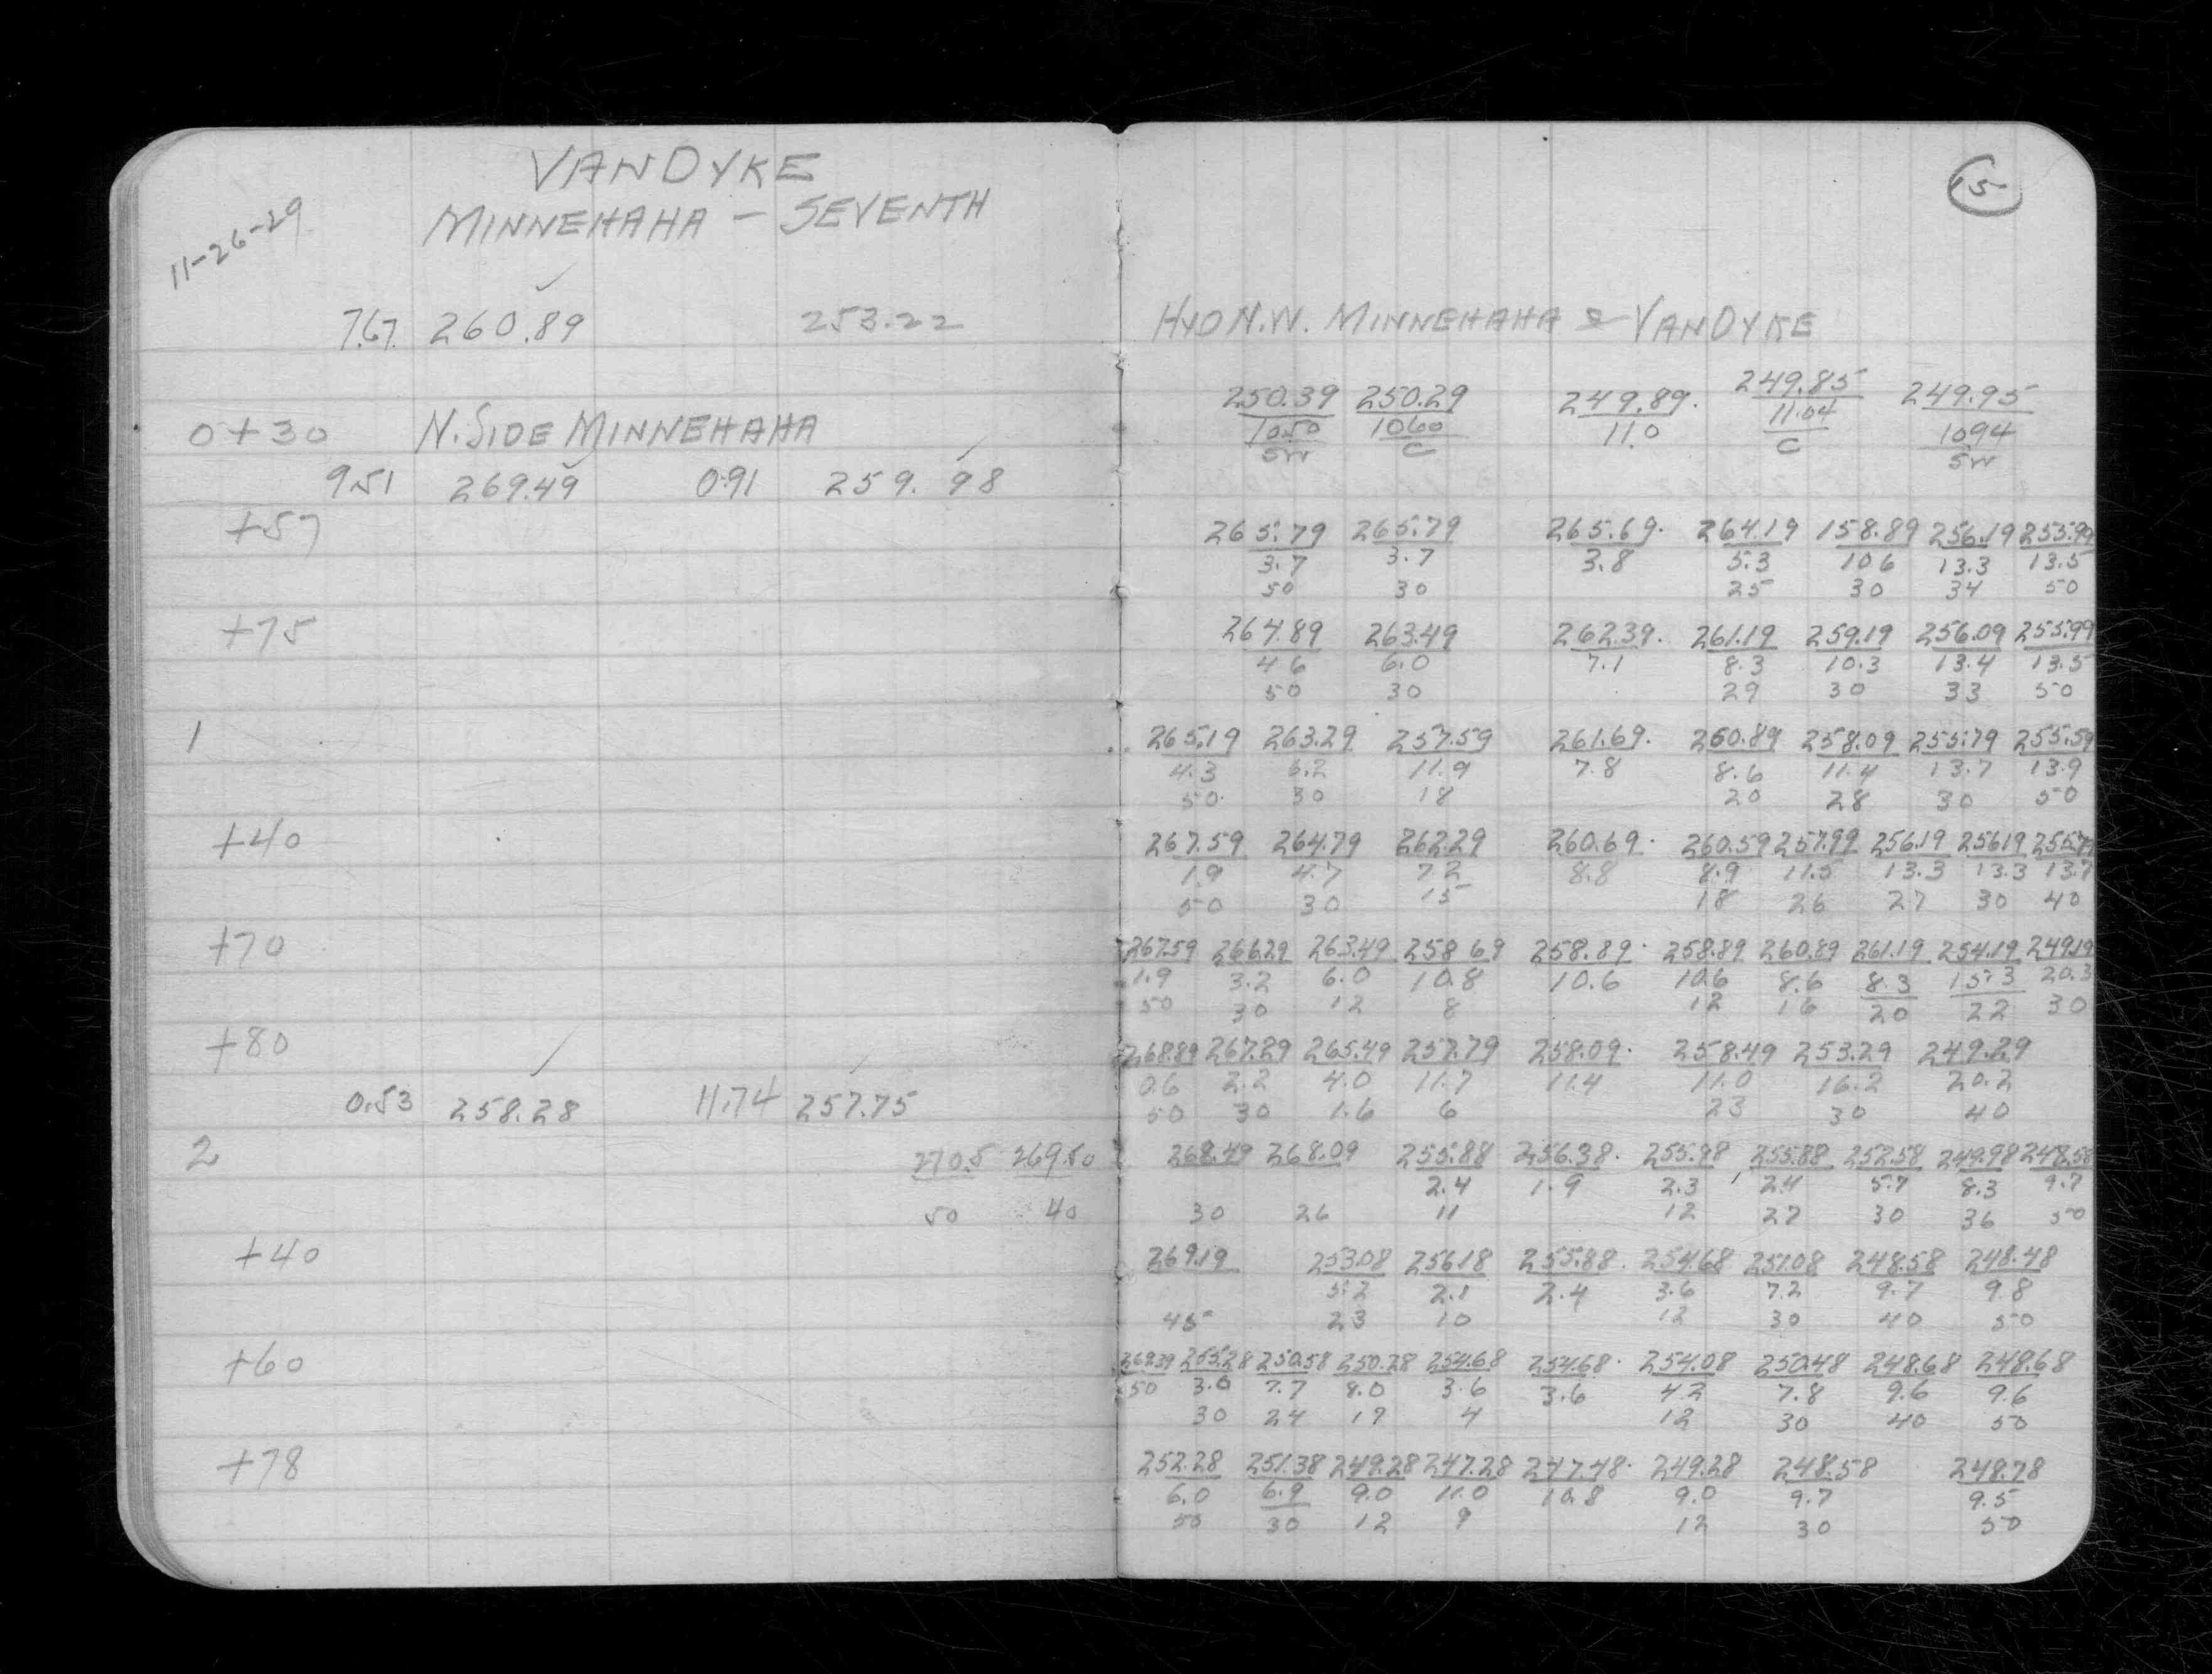 VANDYKE
MINNEHAHA - SEVENTH
11-26-29
15
7.67 260.89 253.22 HYD N.W. MINNEHAHA & VANDYKE
250.39 250.29 249.89 249.85 249.95
0+30 N. SIDE MINNEHAHA 10.50 10.60 11.0 11.04 10.94
SW C C SW
9.51 269.49 0.91 259.98
+57 265.79 265.79 265.69 264.19 158.89 256.19 255.99
3.7 3.7 3.8 5.3 10.6 13.3 13.5
50 30 25 30 34 50
+75 264.89 263.49 262.39 261.19 259.19 256.09 255.99
4.6 6.0 7.1 8.3 10.3 13.4 13.5
50 30 29 30 33 50
1 265.19 263.29 257.59 261.69 260.89 258.09 255.79 255.59
4.3 6.2 11.9 7.8 8.6 11.4 13.7 13.9
50 30 18 20 28 30 50
+40 267.59 264.79 262.29 260.69 260.59 257.99 256.19 256.19 255.79
1.9 4.7 7.2 8.8 8.9 11.5 13.3 13.3 13.7
50 30 15 18 26 27 30 40
+70 267.59 266.29 263.49 258.69 258.89 258.89 260.89 261.19 254.19 249.19
1.9 3.2 6.0 10.8 10.6 10.6 8.6 8.3 15.3 20.3
50 30 12 8 12 16 20 22 30
+80 268.89 267.29 265.49 257.79 258.09 258.49 253.29 249.29
0.6 2.2 4.0 11.7 11.4 11.0 16.2 20.2
0.53 258.28 11.74 257.75 50 30 1.6 6 23 30 40
2 270.5 269.50 268.49 268.09 255.88 256.38 255.98 255.88 252.58 249.98 248.58
2.4 1.9 2.3 2.4 5.7 8.3 9.7
50 40 30 26 11 12 27 30 36 50
+40 269.19 253.08 256.18 255.88 254.68 251.08 248.58 248.48
5.2 2.1 2.4 3.6 7.2 9.7 9.8
45 23 10 12 30 40 50
+60 269.39 255.28 250.58 250.28 254.68 254.68 254.08 250.48 248.68 248.68
50 3.0 7.7 8.0 3.6 3.6 4.2 7.8 9.6 9.6
30 24 17 4 12 30 40 50
+78 252.28 251.38 249.28 247.28 247.48 249.28 248.58 248.78
6.0 6.9 9.0 11.0 10.8 9.0 9.7 9.5
50 30 12 9 12 30 50